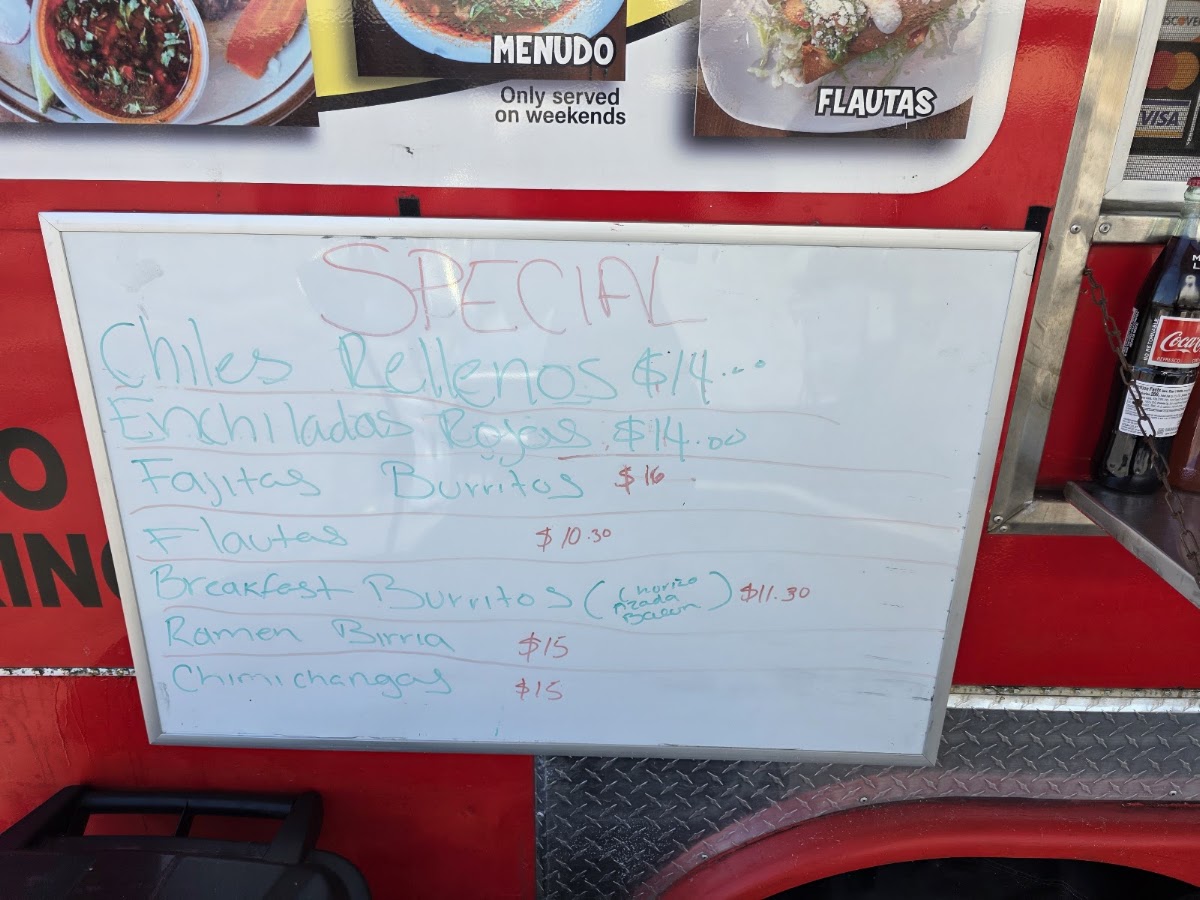 MENUDO
Only served
on weekends
FLAUTAS
DISCOVER
VISA
SPECIAL
Chiles Rellenos $14...
Enchiladas Rojas $14.00
Fajitas Burritos $16
Flautas $10.30
Breakfest Burritos (Chorizo
Azada
Bacon) $11.30
Ramen Birria $15
Chimichangas $15
O
ING
Coca